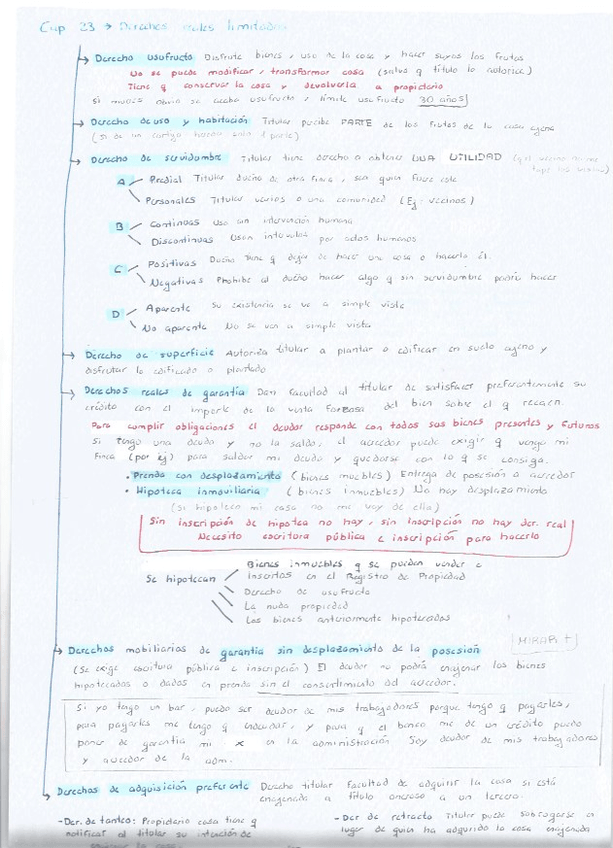 Cap 23 → Derechos reales limitados
→ Derecho usufructo Disfrute bienes, uso de la cosa y hacer suyos los frutos
No se puede modificar, transformar cosa (salvo q título lo autorice)
Tiene q conservar la cosa y devolverla a propietario
Si mueres obvio se acaba usufructo, límite usufructo 30 años
→ Derecho de uso y habitación Titular percibe PARTE de los frutos de la cosa ajena
→ Derecho de servidumbre Titular tiene derecho a obtener UNA UTILIDAD
A Predial Titular dueño de otra finca, sea quien fuere este
Personales Titular varios o una comunidad (Ej. vecinos)
B Continuas Uso sin intervención humana
Discontinuas Usan intervalos por actos humanos
C Positivas Dueño tiene q dejar de hacer una cosa o hacerla él.
Negativas Prohibe al dueño hacer algo q sin servidumbre podría hacer
D Aparente Su existencia se ve a simple vista
No aparente No se ven a simple vista
→ Derecho de superficie Autoriza titular a plantar o edificar en suelo ajeno y
disfrutar lo edificado o plantado
→ Derechos reales de garantía Dan facultad al titular de satisfacer preferentemente su
crédito con el importe de la venta forzosa del bien sobre el q recaen.
Para cumplir obligaciones el deudor responde con todos sus bienes presentes y futuros
Si tengo una deuda y no la saldo, el acreedor puede exigir q venga mi
finca (por ej) para saldar mi deuda y quedarse con lo q se consiga.
• Prenda con desplazamiento (bienes muebles) Entrega de posesión a acreedor
• Hipoteca inmoviliaria (bienes inmuebles) No hay desplazamiento
(si hipoteco mi casa no me voy de ella)
Sin inscripción de hipoteca no hay, sin inscripción no hay der. real
Necesito escritura pública e inscripción para hacerlo
Se hipotecan Bienes inmuebles q se pueden vender e
insertos en el Registro de Propiedad
Derecho de usufructo
La nuda propiedad
Los bienes anteriormente hipotecados
→ Derechos mobiliarios de garantía sin desplazamiento de la posesión MIRAR +
(Se exige escritura pública e inscripción) El deudor no podrá enajenar los bienes
hipotecados o dados en prenda sin el consentimiento del acreedor.
Si yo tengo un bar, puedo ser deudor de mis trabajadores porque tengo q pagarles,
para pagarles me tengo q endeudar, y para q el banco me de un crédito puedo
poner de garantía mi x en la administración Soy deudor de mis trabajadores
y acreedor de la adm.
→ Derechos de adquisición preferente Derecho titular facultad de adquirir la cosa si está
enajenada a título oneroso a un tercero.
- Der. de tanteo: Propietario cosa tiene q
notificar al titular su intención de
- Der de retracto Titular puede subrogarse en
lugar de quien ha adquirido la cosa enajenada